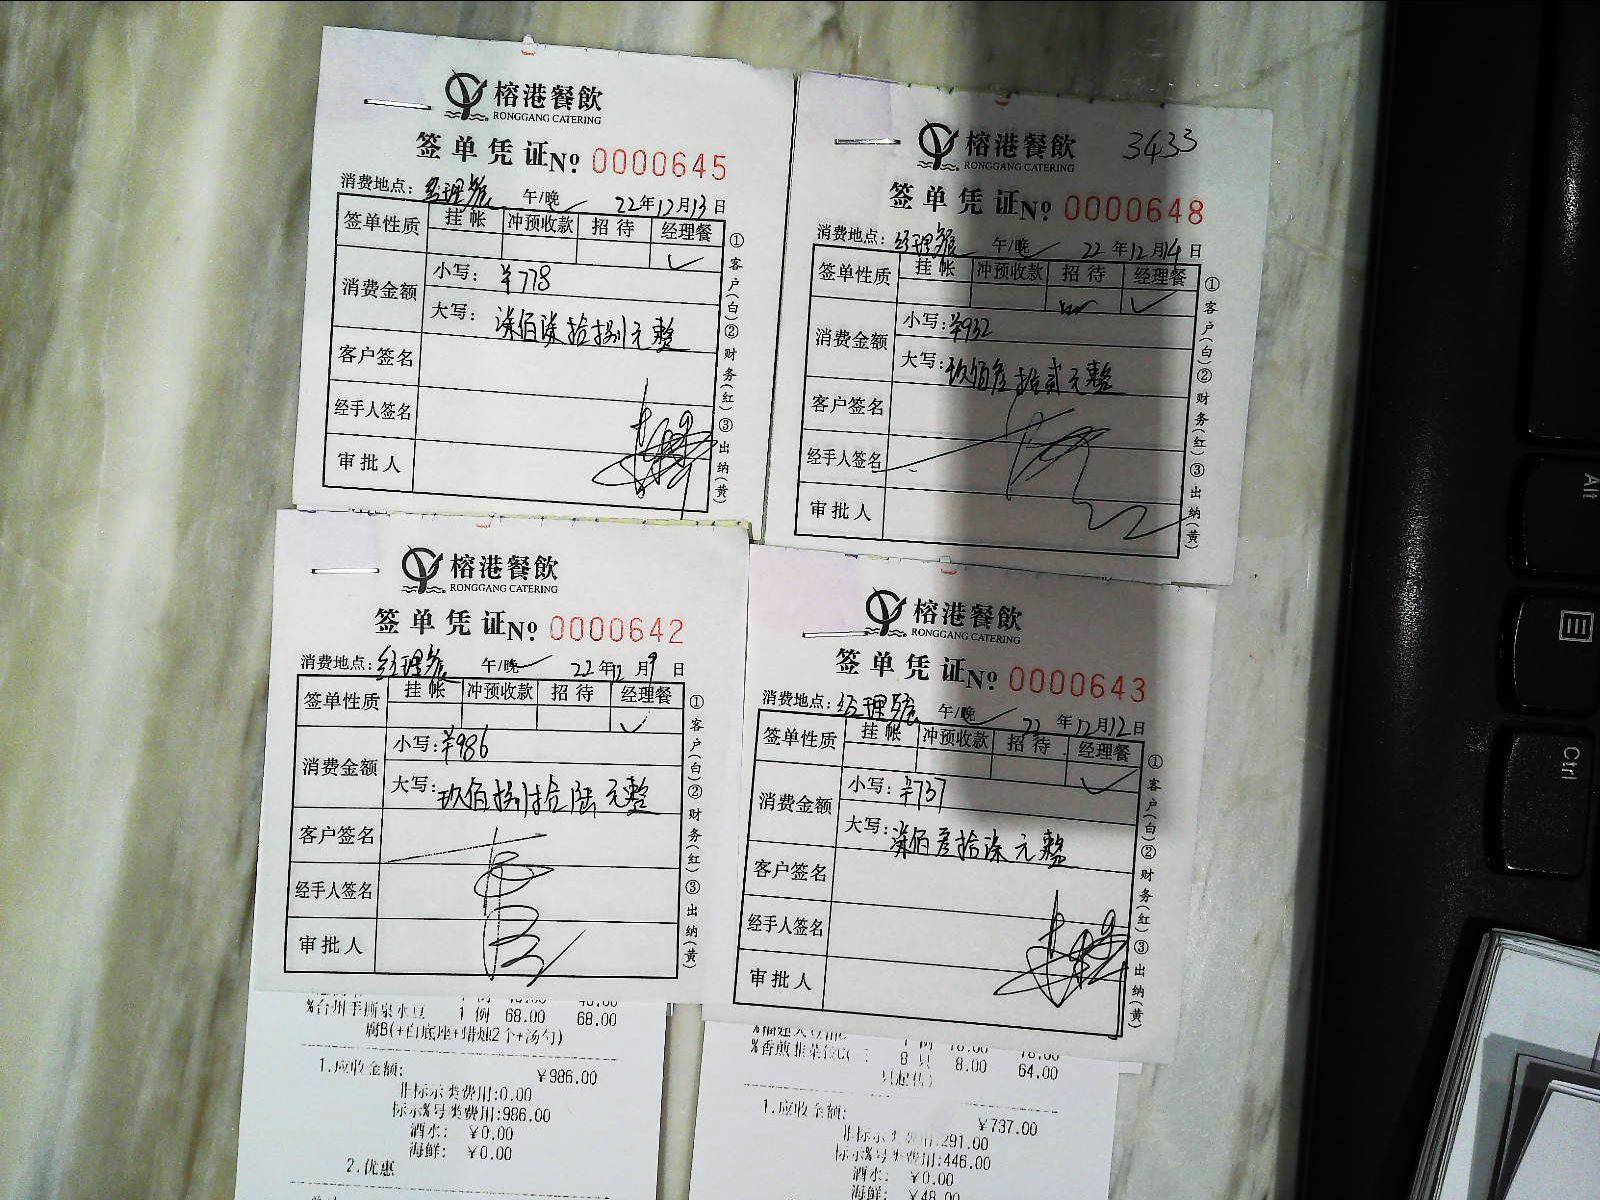 榕港餐飲
RONGGANG CATERING
签单凭证No 0000645
消费地点：经理餐 午/晚 22年12月13日
签单性质 挂帐 冲预收款 招待 经理餐
消费金额 小写：¥778
大写：柒佰柒拾捌元整
客户签名
经手人签名
审批人
①客户(白)②财务(红)③出纳(黄)
榕港餐飲 3433
RONGGANG CATERING
签单凭证No 0000648
消费地点：经理餐 午/晚 22年12月14日
签单性质 挂帐 冲预收款 招待 经理餐
消费金额 小写：¥932
大写：玖佰叁拾贰元整
客户签名
经手人签名
审批人
①客户(白)②财务(红)③出纳(黄)
榕港餐飲
RONGGANG CATERING
签单凭证No 0000642
消费地点：经理餐 午/晚 22年12月9日
签单性质 挂帐 冲预收款 招待 经理餐
消费金额 小写：¥986
大写：玖佰捌拾陆元整
客户签名
经手人签名
审批人
①客户(白)②财务(红)③出纳(黄)
%台州手撕泉水豆 1 例 68.00 68.00
腐B(+白底座+蜡烛2个+汤勺)
1.应收金额： ¥986.00
非标示类费用:0.00
标示%号类费用:986.00
酒水： ¥0.00
海鲜： ¥0.00
2.优惠
榕港餐飲
RONGGANG CATERING
签单凭证No 0000643
消费地点：经理餐 午/晚 22年12月12日
签单性质 挂帐 冲预收款 招待 经理餐
消费金额 小写：¥737
大写：柒佰叁拾柒元整
客户签名
经手人签名
审批人
①客户(白)②财务(红)③出纳(黄)
%香煎韭菜 8 只 8.00 64.00
只起售)
1.应收金额： ¥737.00
非标示类费用:291.00
标示%号类费用:446.00
酒水： ¥0.00
海鲜： ¥48.00
Alt
Ctrl